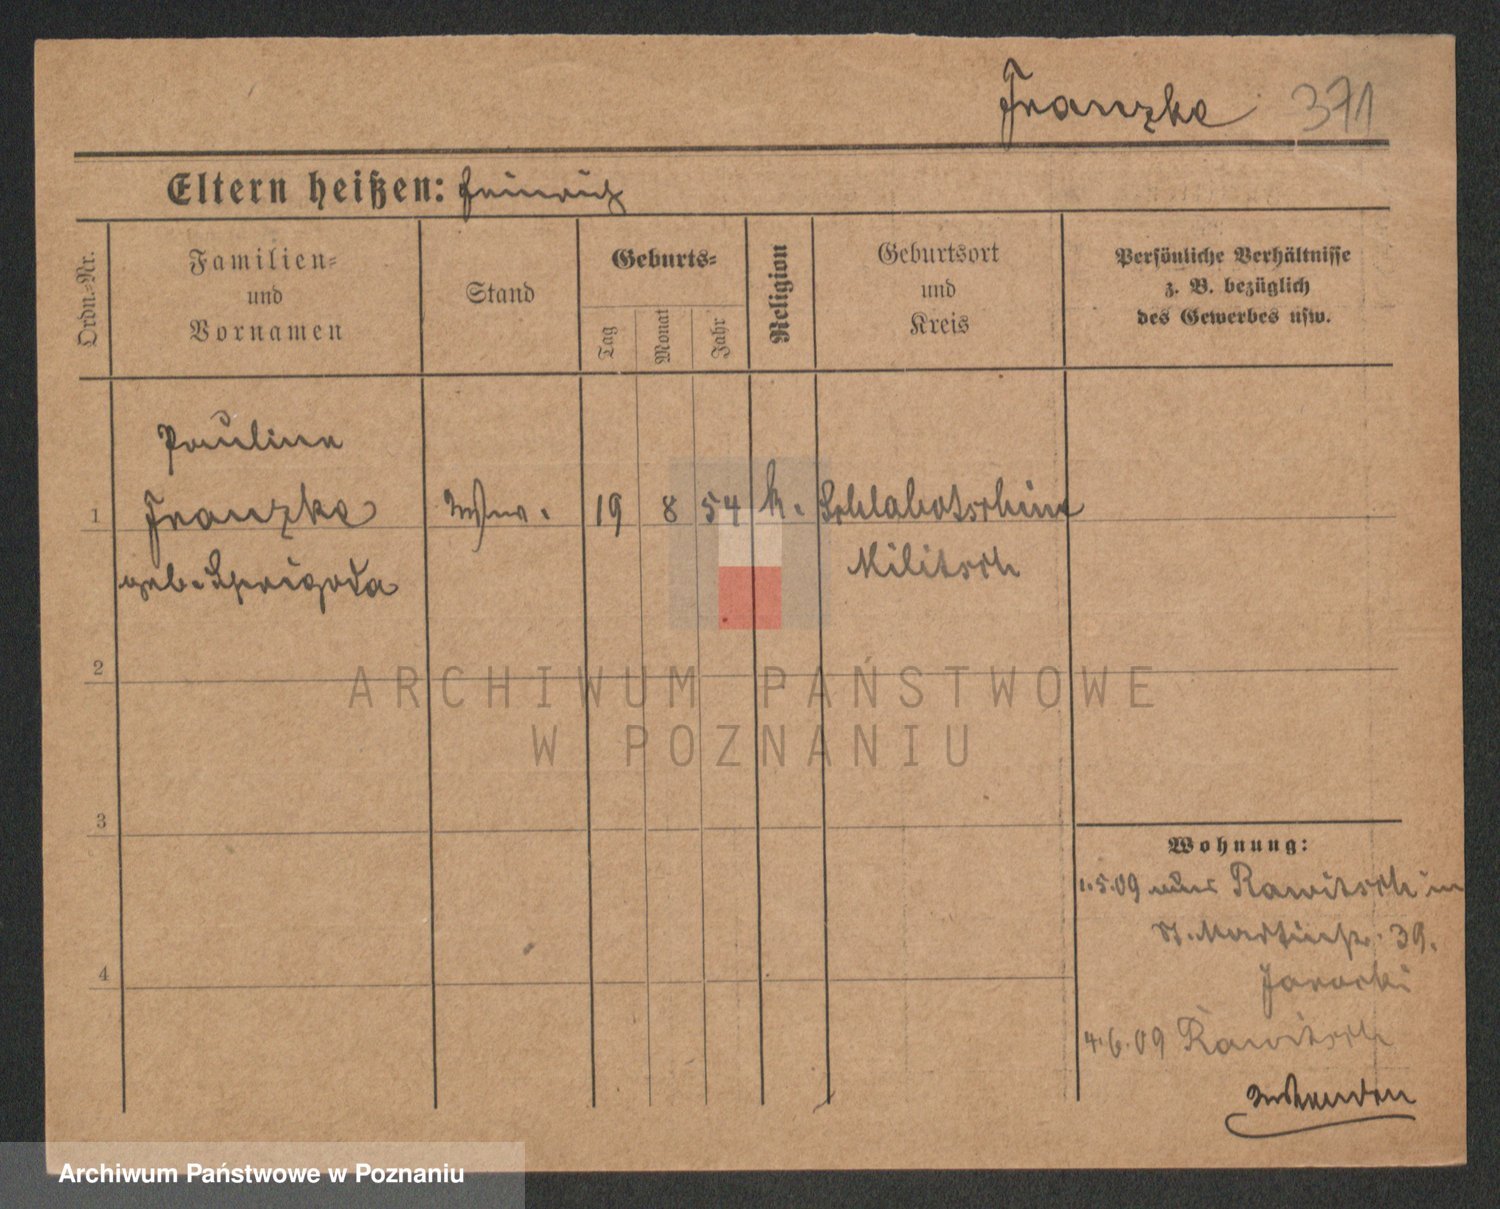 Franzke 371
Eltern heißen: Heinrich
Ordn.-Nr.
Familien-
und
Vornamen
Stand
Geburts-
Tag
Monat
Jahr
Religion
Geburtsort
und
Kreis
Persönliche Verhältnisse
z. B. bezüglich
des Gewerbes usw.
Pauline
1 Franzke Ww. 19 8 54 k. Schlabotschine
geb. Sprigoda Militsch
2
3
4
Wohnung:
1.5.09 aus Rawitsch in
St. Martinstr. 39.
4.6.09 Rawitsch
ARCHIWUM PAŃSTWOWE
W POZNANIU
Archiwum Państwowe w Poznaniu